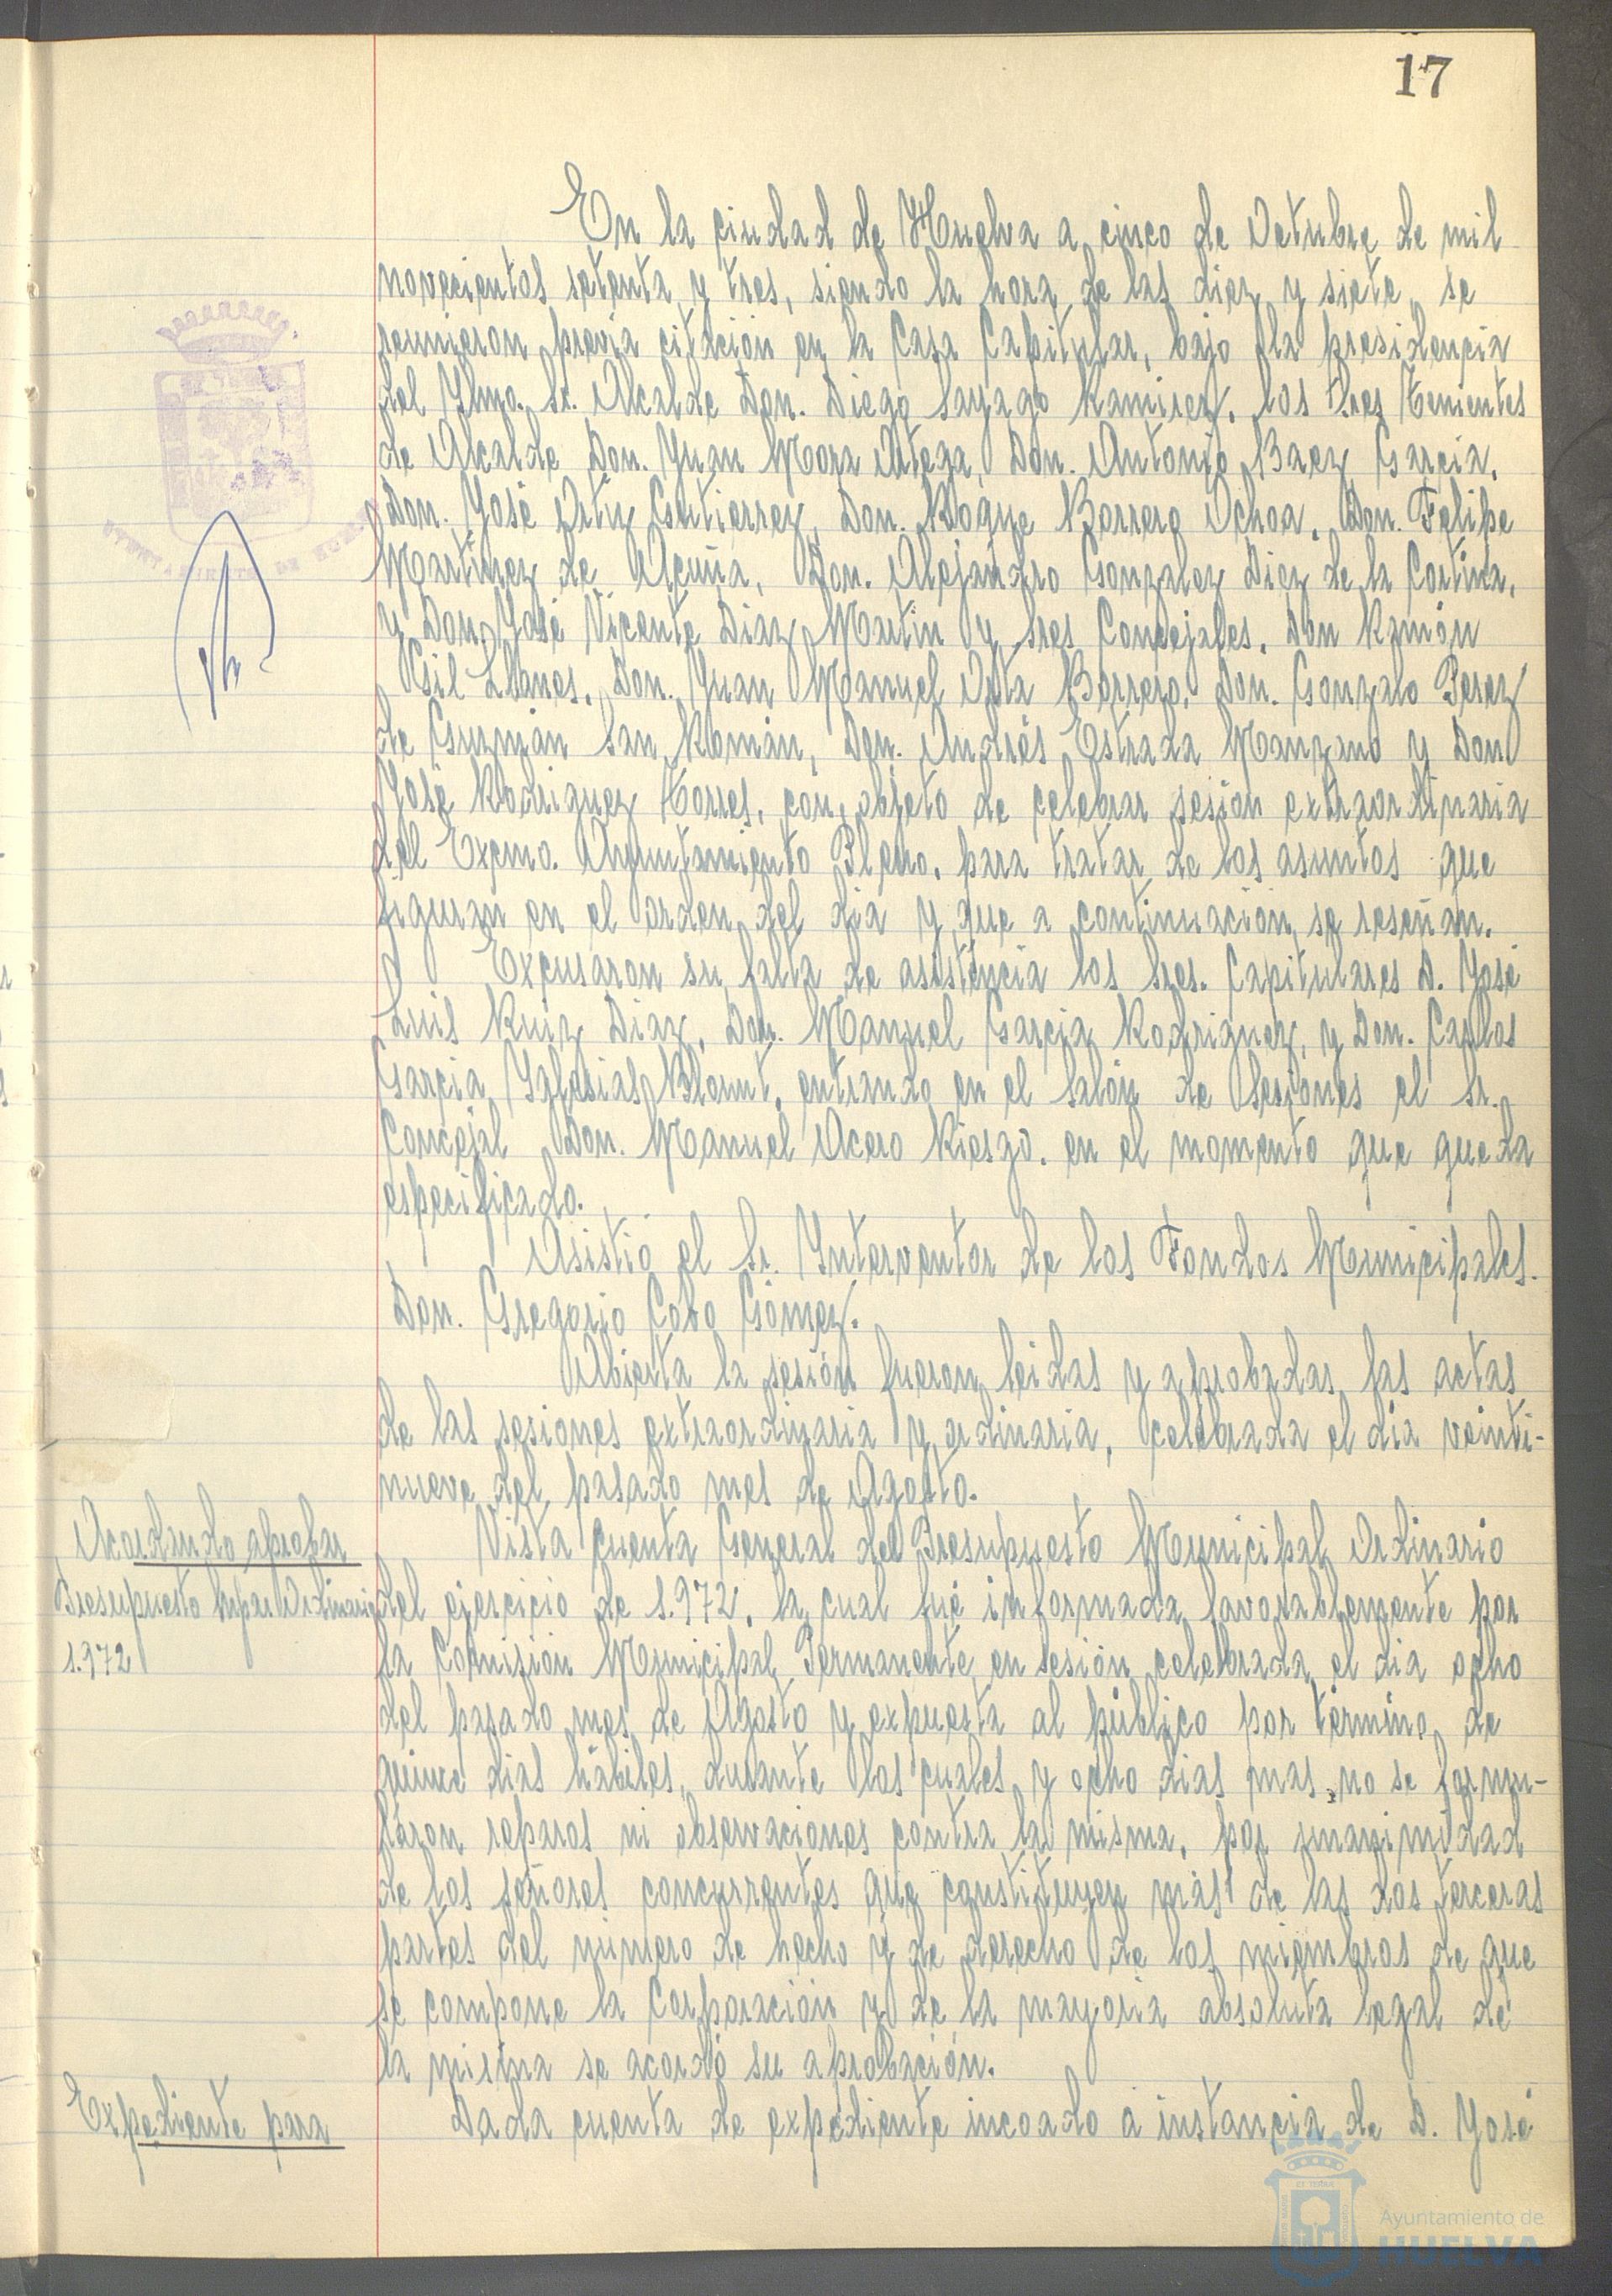 17
En la ciudad de Huelva a cinco de Octubre de mil
novecientos setenta y tres, siendo la hora de las diez y siete, se
reunieron previa citación en la Casa Capitular, bajo la presidencia
del Ylmo. Sr. Alcalde Don. Diego Sayago Ramirez, los Sres Tenientes
de Alcalde Don. Juan Mora Ortega, Don. Antonio Baez Garcia,
Don. José Ortiz Gutierrez, Don. Roque Borrero Ochoa, Don. Felipe
Martinez de Acuña, Don. Alejandro Gonzalez Diez de la Cortina,
y Don José Vicente Diaz Martin y Sres Concejales, Don Ramón
Gil Llanes, Don. Juan Manuel Orta Borrero, Don. Gonzalo Perez
de Guzmán San Román, Don. Andrés Estrada Manzano y Don
José Rodriguez Torres, con objeto de celebrar sesión extraordinaria
del Excmo. Ayuntamiento Pleno, para tratar de los asuntos que
figuran en el orden del dia y que a continuación se reseñan.
Excusaron su falta de asistencia los Sres. Capitulares D. José
Luis Ruiz Diaz, Don. Manuel Garcia Rodriguez, y Don. Carlos
Garcia Yglesias, entrando en el Salón de Sesiones el Sr.
Concejal Don. Manuel Acero Riesgo, en el momento que queda
especificado.
Asistió el Sr. Interventor de los Fondos Municipales.
Don. Gregorio Cobo Gómez.
Abierta la sesión fueron leidas y aprobadas las actas
de las sesiones extraordinaria y ordinaria, celebrada el dia veinti-
nueve del pasado mes de Agosto.
Acordando aprobar
Presupuesto Ordinario
1.972
Vista cuenta General del Presupuesto Municipal Ordinario
del ejercicio de 1.972, la cual fué informada favorablemente por
la Comisión Municipal Permanente en sesión celebrada el dia ocho
del pasado mes de Agosto y expuesta al público por término de
quince dias hábiles, durante los cuales y ocho dias mas no se formu-
laron reparos ni observaciones contra la misma, por unanimidad
de los señores concurrentes que constituyen más de las dos terceras
partes del número de hecho y de derecho de los miembros de que
se compone la Corporación y de la mayoria absoluta legal de
la misma se acordó su aprobación.
Expediente para
Dada cuenta de expediente incoado a instancia de D. José
Ayuntamiento de
HUELVA